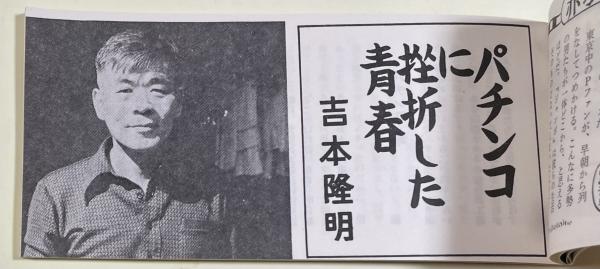 パチンコ
に
挫折した
青春
吉本隆明
東京中のPファンが、早朝から列
をなしてつめかける。こんなに多勢
の男たちが一体どこから、と思える